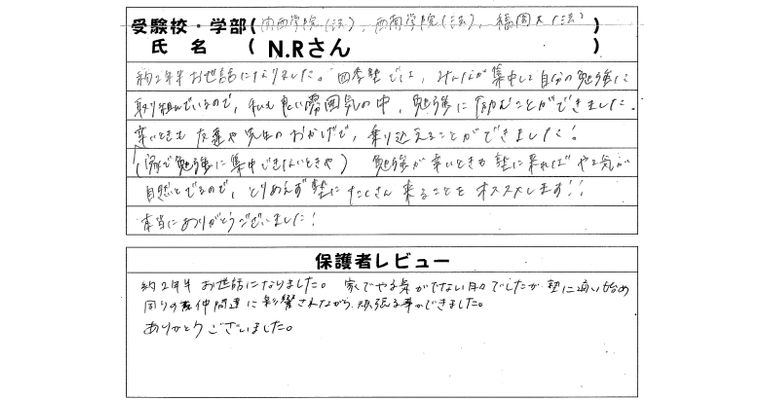 受験校・学部(関西学院(法)、西南学院(法)、福岡大(法))
氏名(N.Rさん)
約2年半お世話になりました。四季塾では、みんなが集中して自分の勉強に
取り組んでいるので、私も良い雰囲気の中、勉強に励むことができました。
辛いときも友達や先生のおかげで、乗り込えることができました!
(家で勉強に集中できないときや) 勉強が辛いときも塾に来ればやる気が
自然とでるので、とりあえず塾にたくさん来ることをオススメします!!
本当にありがとうございました!
保護者レビュー
約2年半お世話になりました。家でやる気がでない日々でしたが塾に通い始め
周りの仲間達に影響されながら頑張る事ができました。
ありがとうございました。